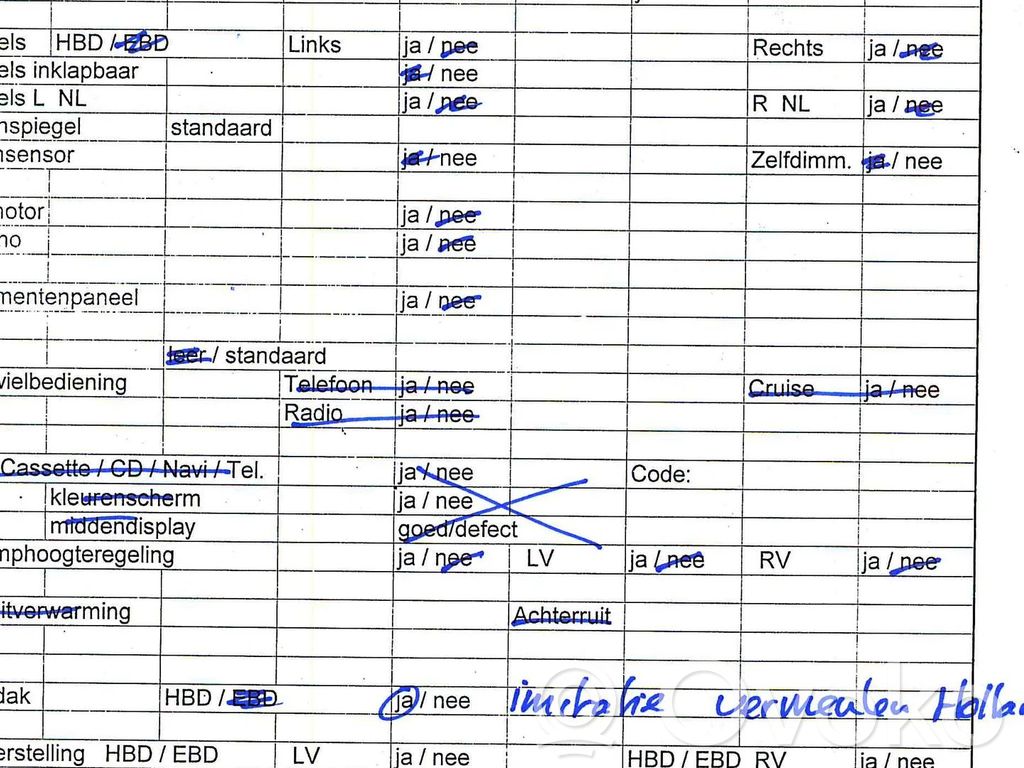 els HBD / EBD Links ja / nee Rechts ja / nee
els inklapbaar ja / nee
els L NL ja / nee R NL ja / nee
nspiegel standaard
nsensor ja / nee Zelfdimm. ja / nee
notor ja / nee
no ja / nee
mentenpaneel ja / nee
leer / standaard
vielbediening Telefoon ja / nee Cruise ja / nee
Radio ja / nee
Cassette / CD / Navi / Tel. ja / nee Code:
kleurenscherm ja / nee
middendisplay goed/defect
mphoogteregeling ja / nee LV ja / nee RV ja / nee
itverwarming Achterruit
dak HBD / EBD ja / nee imitatie vermeulen Holla
Ovoko
erstelling HBD / EBD LV ja / nee HBD / EBD RV ja / nee